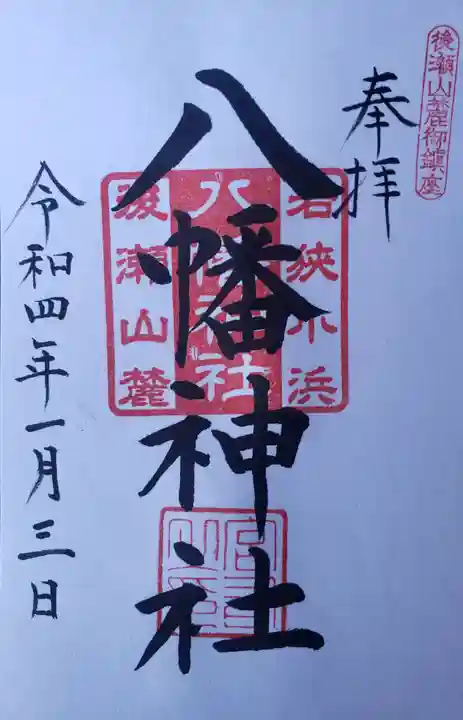 後瀬山麓御鎮座
奉拝
八幡神社
若狭小浜
八幡神社
後瀬山麓
令和四年一月三日